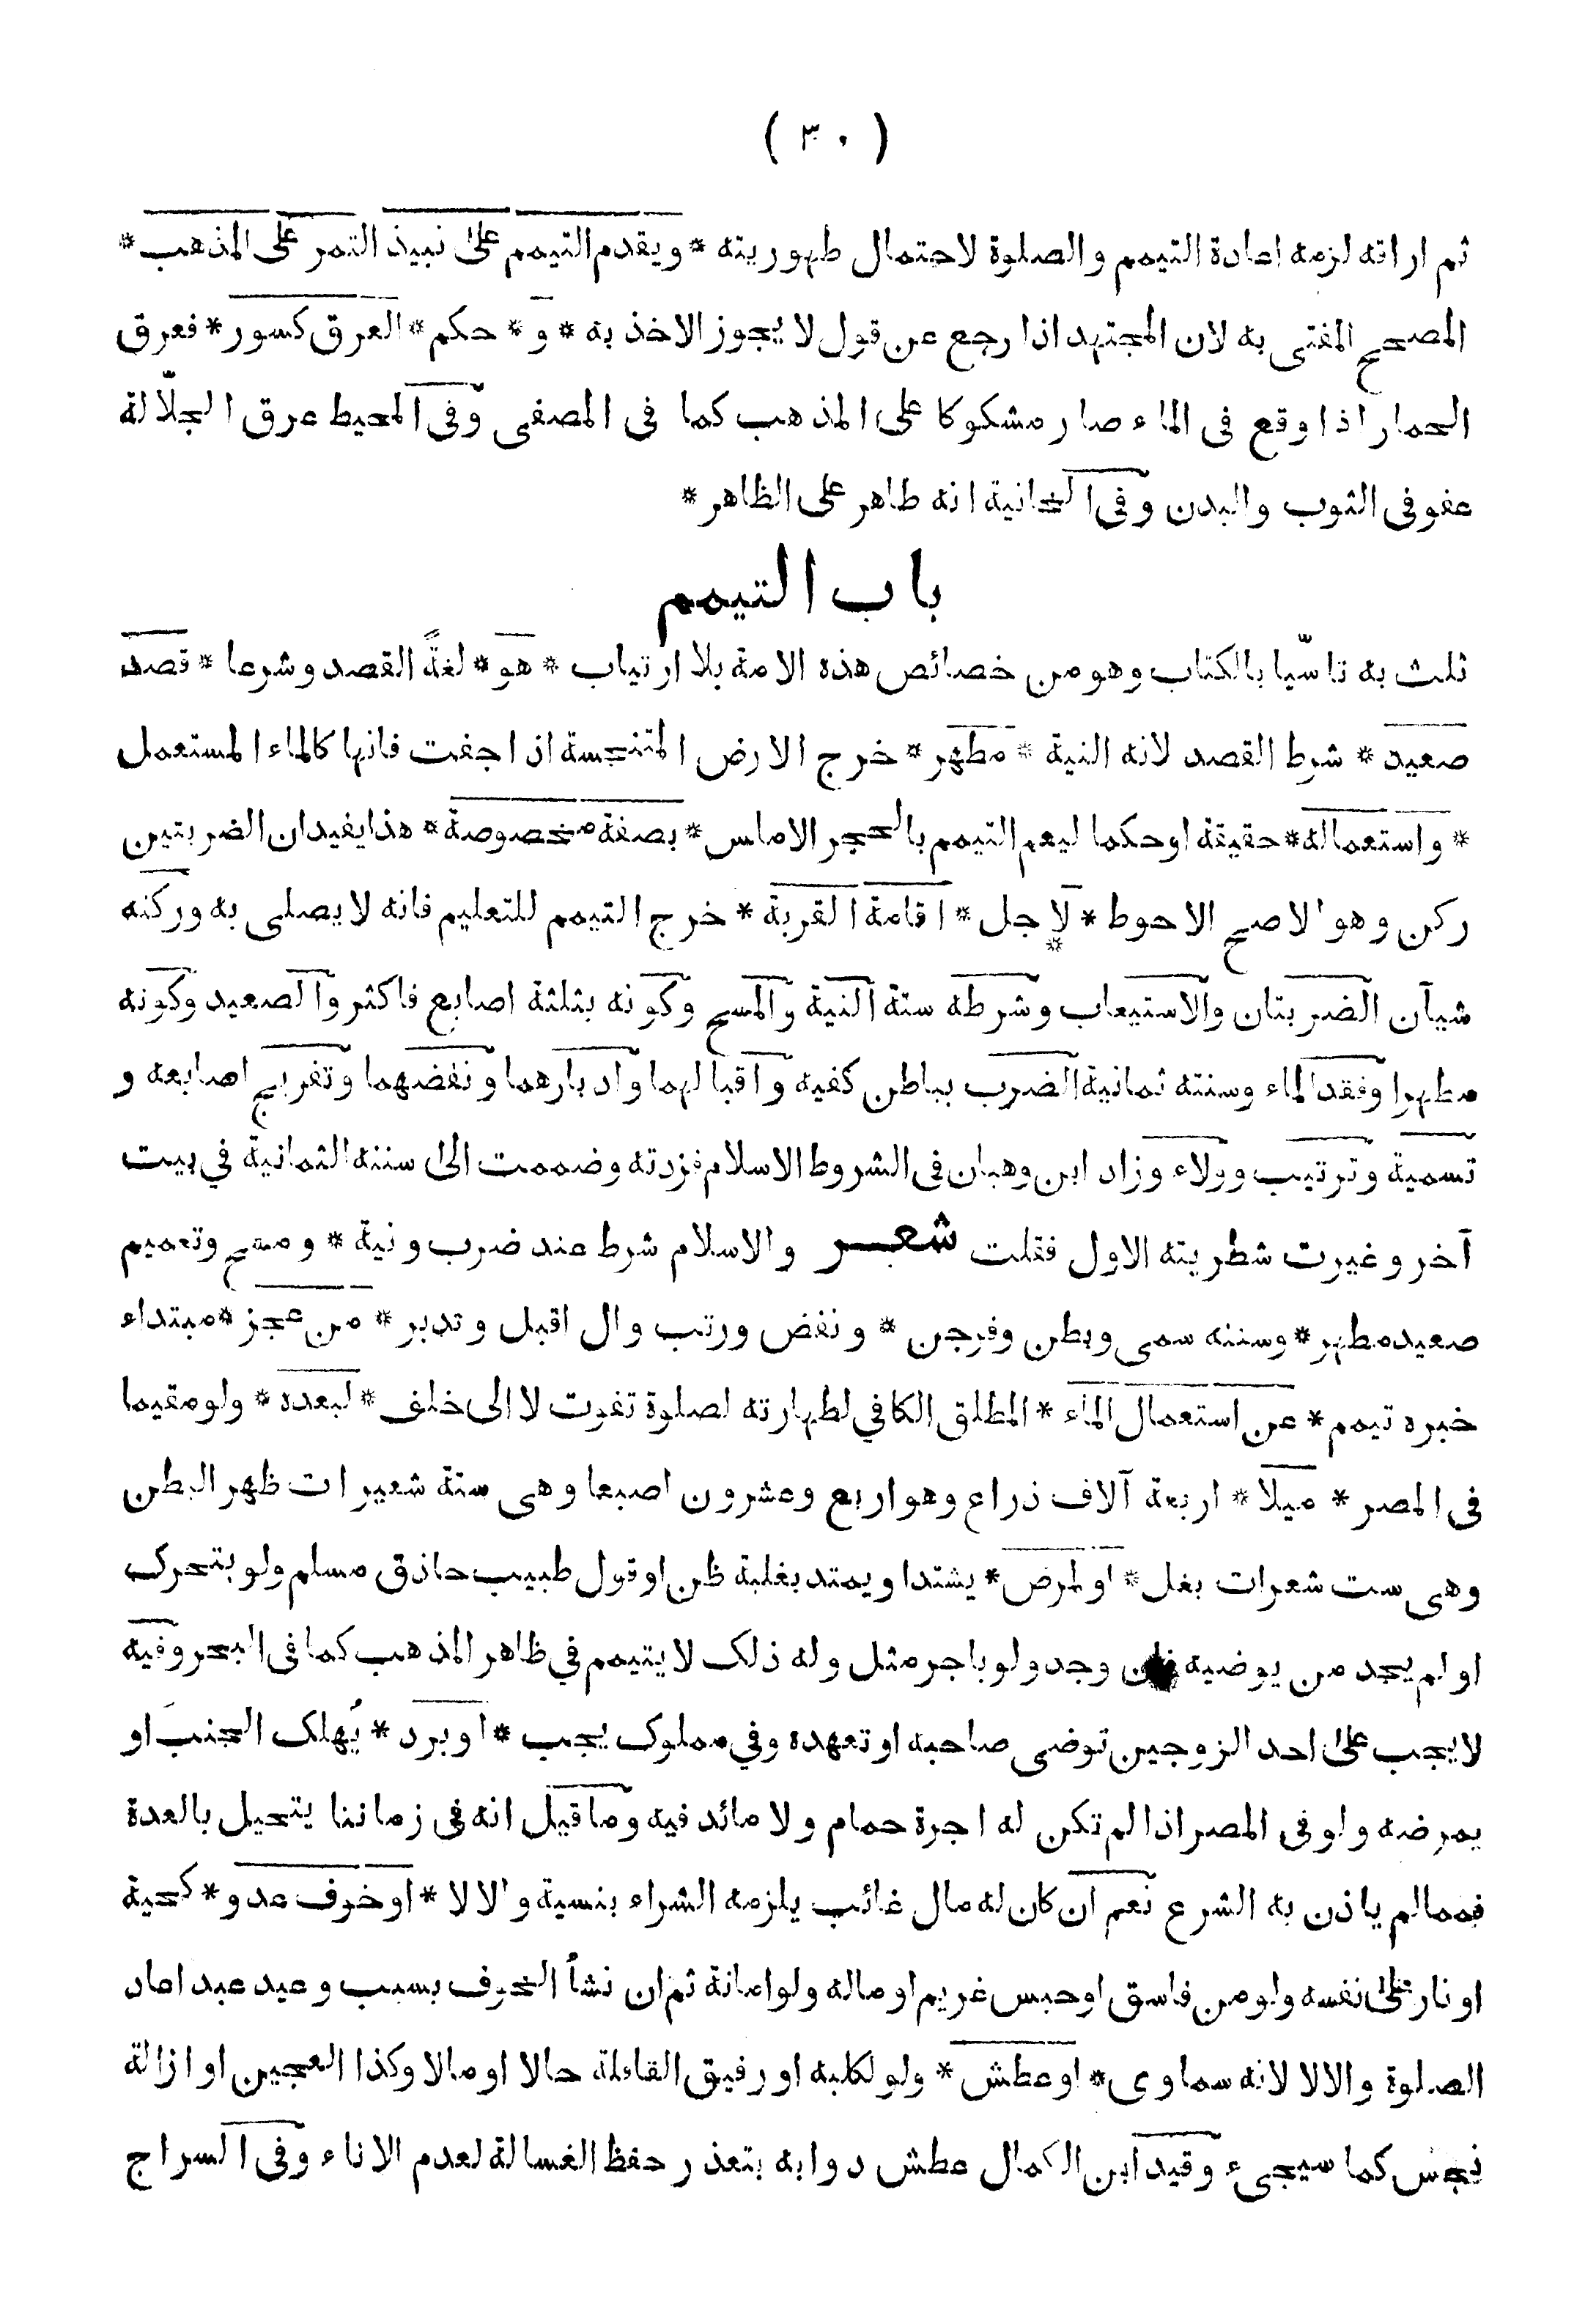 ( ٣٠ )
ثم اراقه لزمه اعادة التيمم والصلوة لاحتمال طهوريته * ويقدم التيمم على نبيذ التمر على المذهب *
المصحح المفتى به لان المجتهد اذا رجع عن قول لا يجوز الاخذ به * و * حكم * العرق كسور * فعرق
الحمار اذا وقع فى الماء صار مشكوكا على المذهب كما فى المصفى وفى المحيط عرق الجلّالة
عفو فى الثوب والبدن وفى الخانية انه طاهر على الظاهر *
باب التيمم
ثلث به تاسّيا بالكتاب وهو من خصائص هذه الامة بلا ارتياب * هو * لغةً القصد وشرعا * قصد
صعيد * شرط القصد لانه النية * مطهر * خرج الارض المتنجسة اذا جفت فانها كالماء المستعمل
* واستعماله * حقيقة او حكما ليعم التيمم بالحجر الاملس * بصفة مخصوصة * هذا يفيد ان الضربتين
ركن وهو الاصح الاحوط * لاجل * اقامة القربة * خرج التيمم للتعليم فانه لا يصلى به وركنه
شيآن الضربتان والاستيعاب وشرطه ستة النية والمسح وكونه بثلثة اصابع فاكثر والصعيد وكونه
مطهرا وفقد الماء وسننه ثمانية الضرب بباطن كفيه واقبالهما وادبارهما ونفضهما وتفريج اصابعه و
تسمية وترتيب وولاء وزاد ابن وهبان فى الشروط الاسلام فزدته وضممت الى سننه الثمانية في بيت
آخر وغيرت شطر بيته الاول فقلت شعـــر والاسلام شرط عند ضرب ونية * ومسح وتعميم
صعيد مطهر * وسننه سمى وبطن وفرجن * ونفض ورتب وال اقبل وتدبر * من عجز * مبتداء
خبره تيمم * عن استعمال الماء * المطلق الكافي لطهارته لصلوة تفوت لا الى خلف * لبعده * ولو مقيما
فى المصر * ميلا * اربعة آلاف ذراع وهو اربع وعشرون اصبعا وهى ستة شعيرات ظهر البطن
وهى ست شعرات بغل * او لمرض * يشتد او يمتد بغلبة ظن او قول طبيب حاذق مسلم ولو بتحرك
او لم يجد من يوضيه فان وجد ولو باجر مثل وله ذلك لا يتيمم في ظاهر المذهب كما فى البحر وفيه
لا يجب على احد الزوجين توضى صاحبه او تعهده وفي مملوك يجب * او برد * يُهلك الجنبَ او
يمرضه ولو فى المصر اذا لم تكن له اجرة حمام ولا مائدفيه وما قيل انه فى زماننا يتحيل بالعدة
فمما لم ياذن به الشرع نعم ان كان له مال غائب يلزمه الشراء بنسية والا لا * او خوف عدو * كحية
او نار على نفسه ولو من فاسق او حبس غريم او ماله ولو امانة ثم ان نشأ الخوف بسبب وعيد عبد اعاد
الصلوة والا لا لانه سماوى * او عطش * ولو لكلبه او رفيق القافلة حالا او مالا وكذا العجين او ازالة
نجس كما سيجىء وقيد ابن الكمال عطش دوابه بتعذر حفظ الغسالة لعدم الاناء وفى السراج